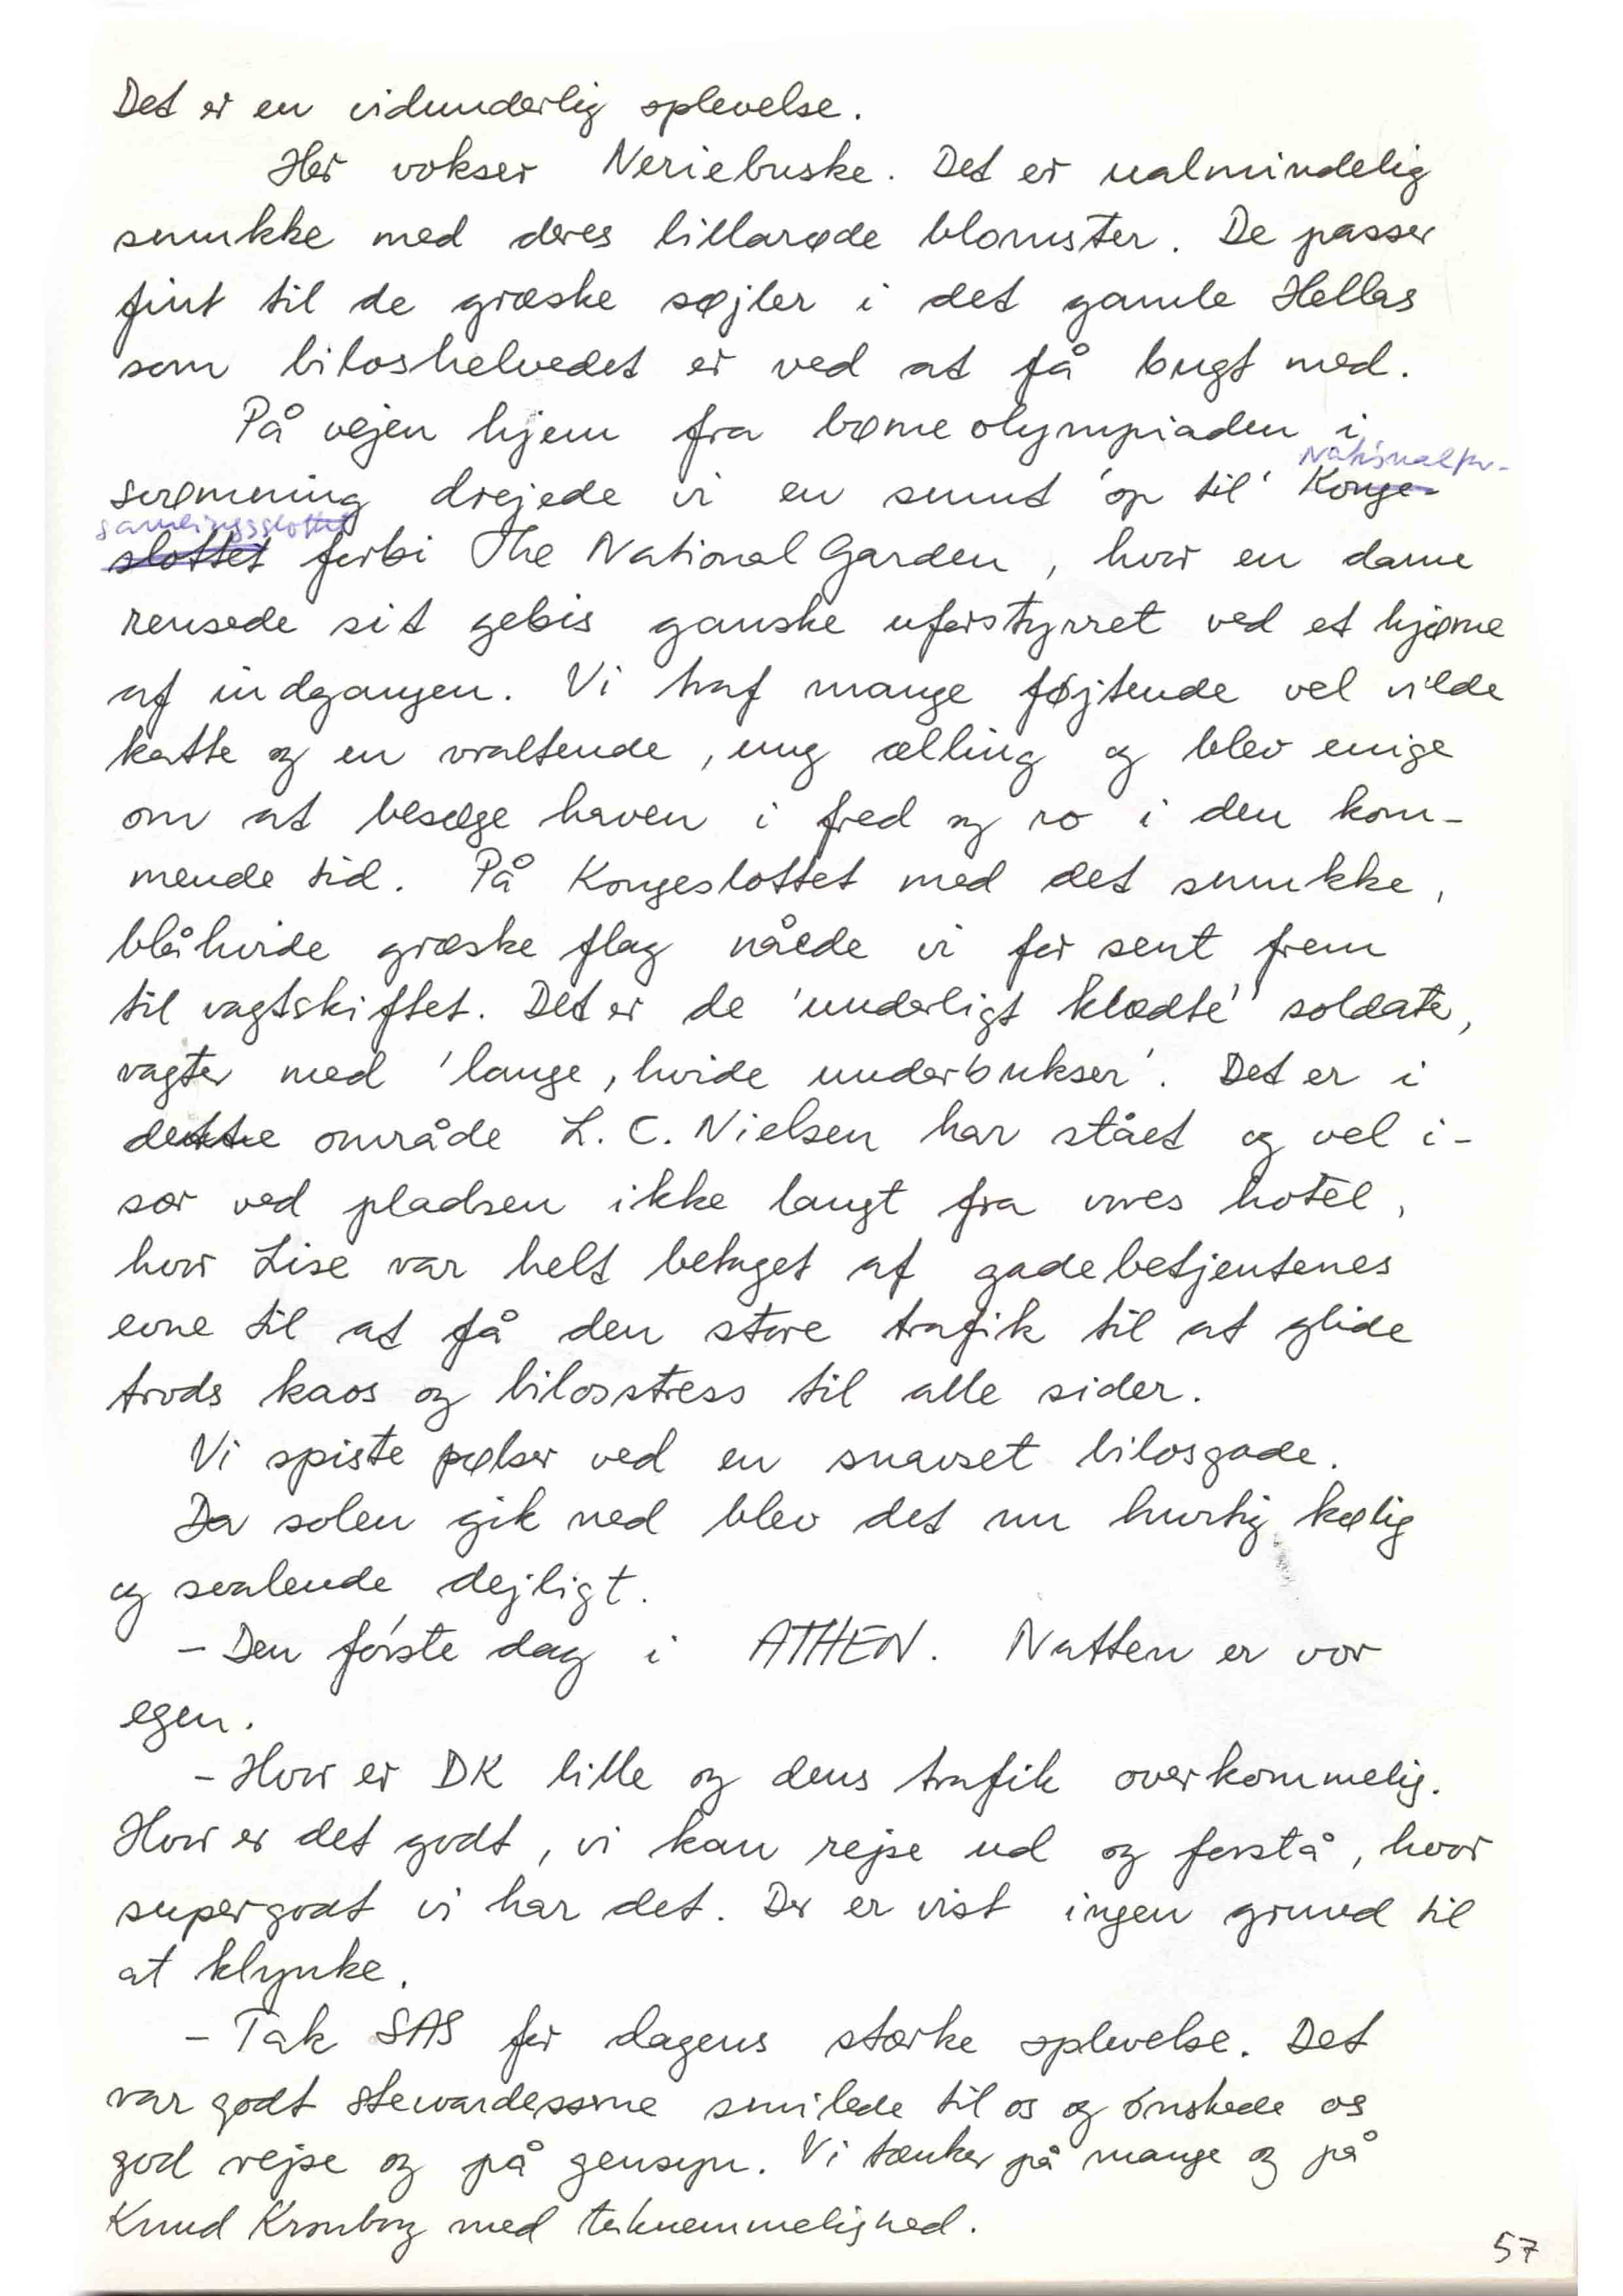 Det er en vidunderlig oplevelse.
Her vokser Neriebuske. Det er ualmindelig
smukke med deres lillarøde blomster. De passer
fint til de græske søjler i det gamle Hellas
som biloshelvedet er ved at få bugt med.
På vejen hjem fra børneolympiaden i
svømning drejede vi en smut 'op til' Konge-
Nationalfor-
samlingsslottet
slottet forbi The National Garden, hvor en dame
rensede sit gebis ganske uforstyrret ved et hjørne
af indgangen. Vi traf mange føjtende vel vilde
katte og en vraltende, ung ælling og blev enige
om at besøge haven i fred og ro i den kom-
mende tid. På Kongeslottet med det smukke,
blåhvide græske flag nåede vi for sent frem
til vagtskiftet. Det er de 'underligt klædte' soldater,
vagter med 'lange, hvide underbukser'. Det er i
dette område L. C. Nielsen har stået og vel i-
sær ved pladsen ikke langt fra vores hotel,
hvor Lise var helt betaget af gadebetjentenes
evne til at få den store trafik til at glide
trods kaos og bilosstress til alle sider.
Vi spiste pølser ved en snavset bilosgade.
Da solen gik ned blev det nu hurtig kølig
og svalende dejligt.
- Den første dag i ATHEN. Natten er vor
egen.
- Hvor er DK lille og dens trafik overkommelig.
Hvor er det godt, vi kan rejse ud og forstå, hvor
supergodt vi har det. Der er vist ingen grund til
at klynke.
- Tak SAS for dagens stærke oplevelse. Det
var godt stewardesserne smilede til os og ønskede os
god rejse og på gensyn. Vi tænker på mange og på
Knud Kronborg med taknemmelighed.
57